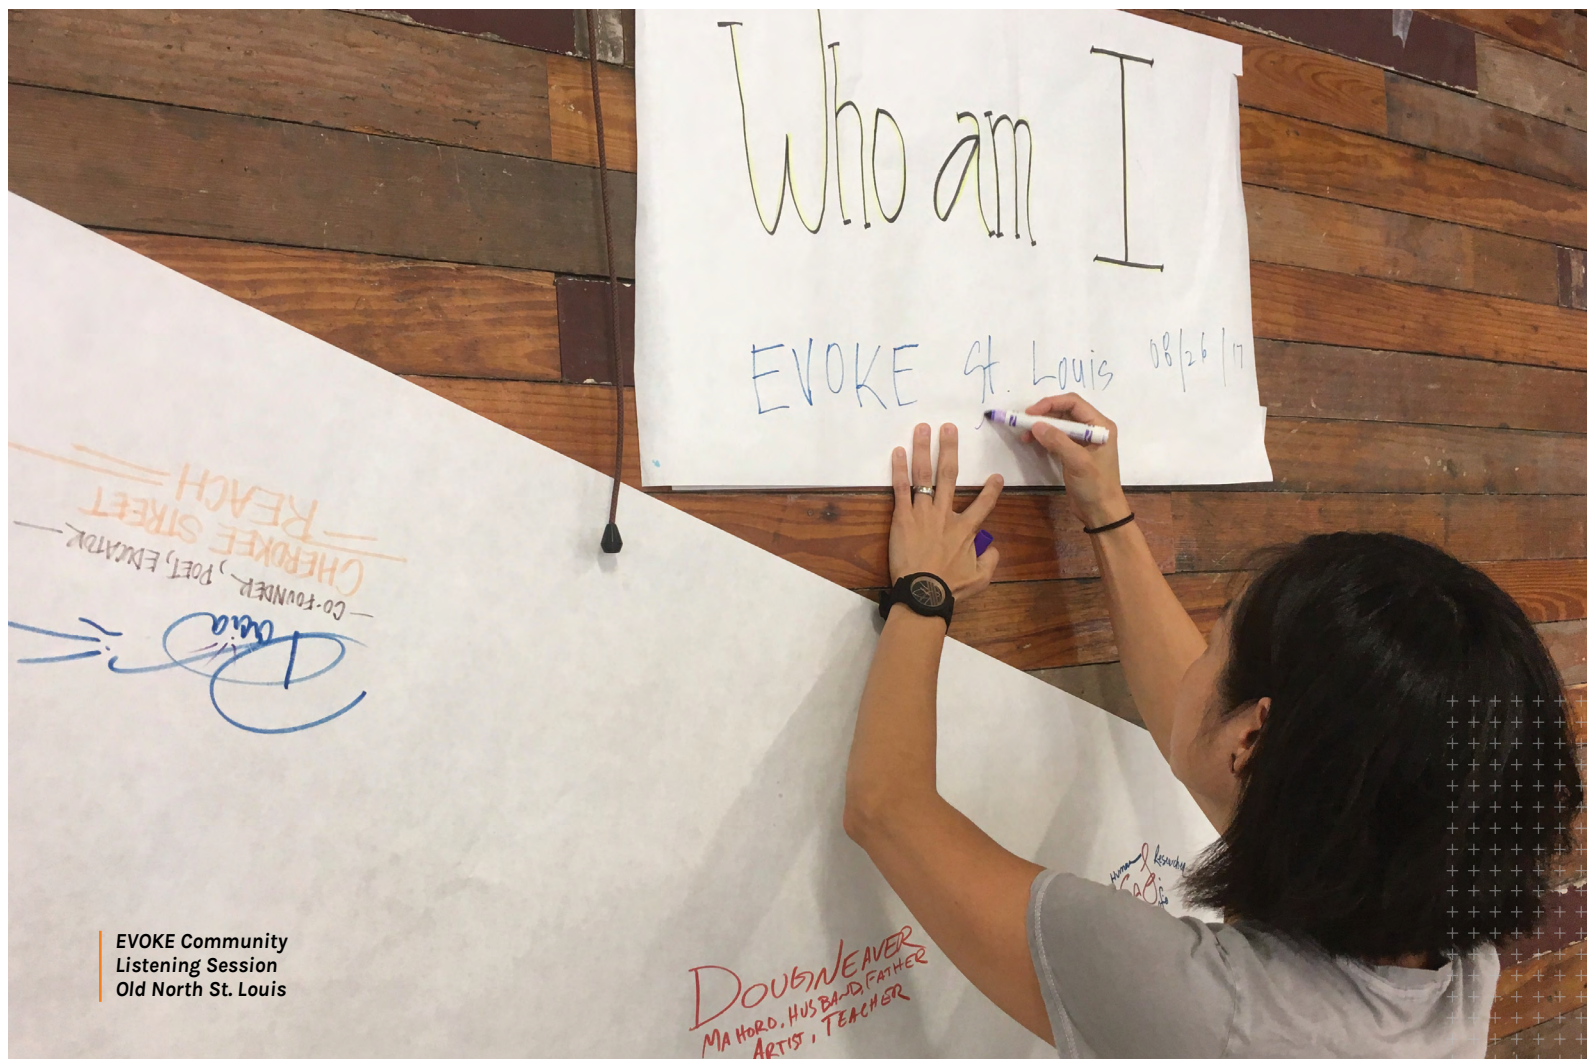 Who am I
EVOKE St. Louis 08/26/17
CHEROKEE STREET
REACH
CO-FOUNDER, POET, EDUCATOR
Human Researcher
DOUG WEAVER
MAHORO, HUSBAND, FATHER
ARTIST, TEACHER
EVOKE Community
Listening Session
Old North St. Louis